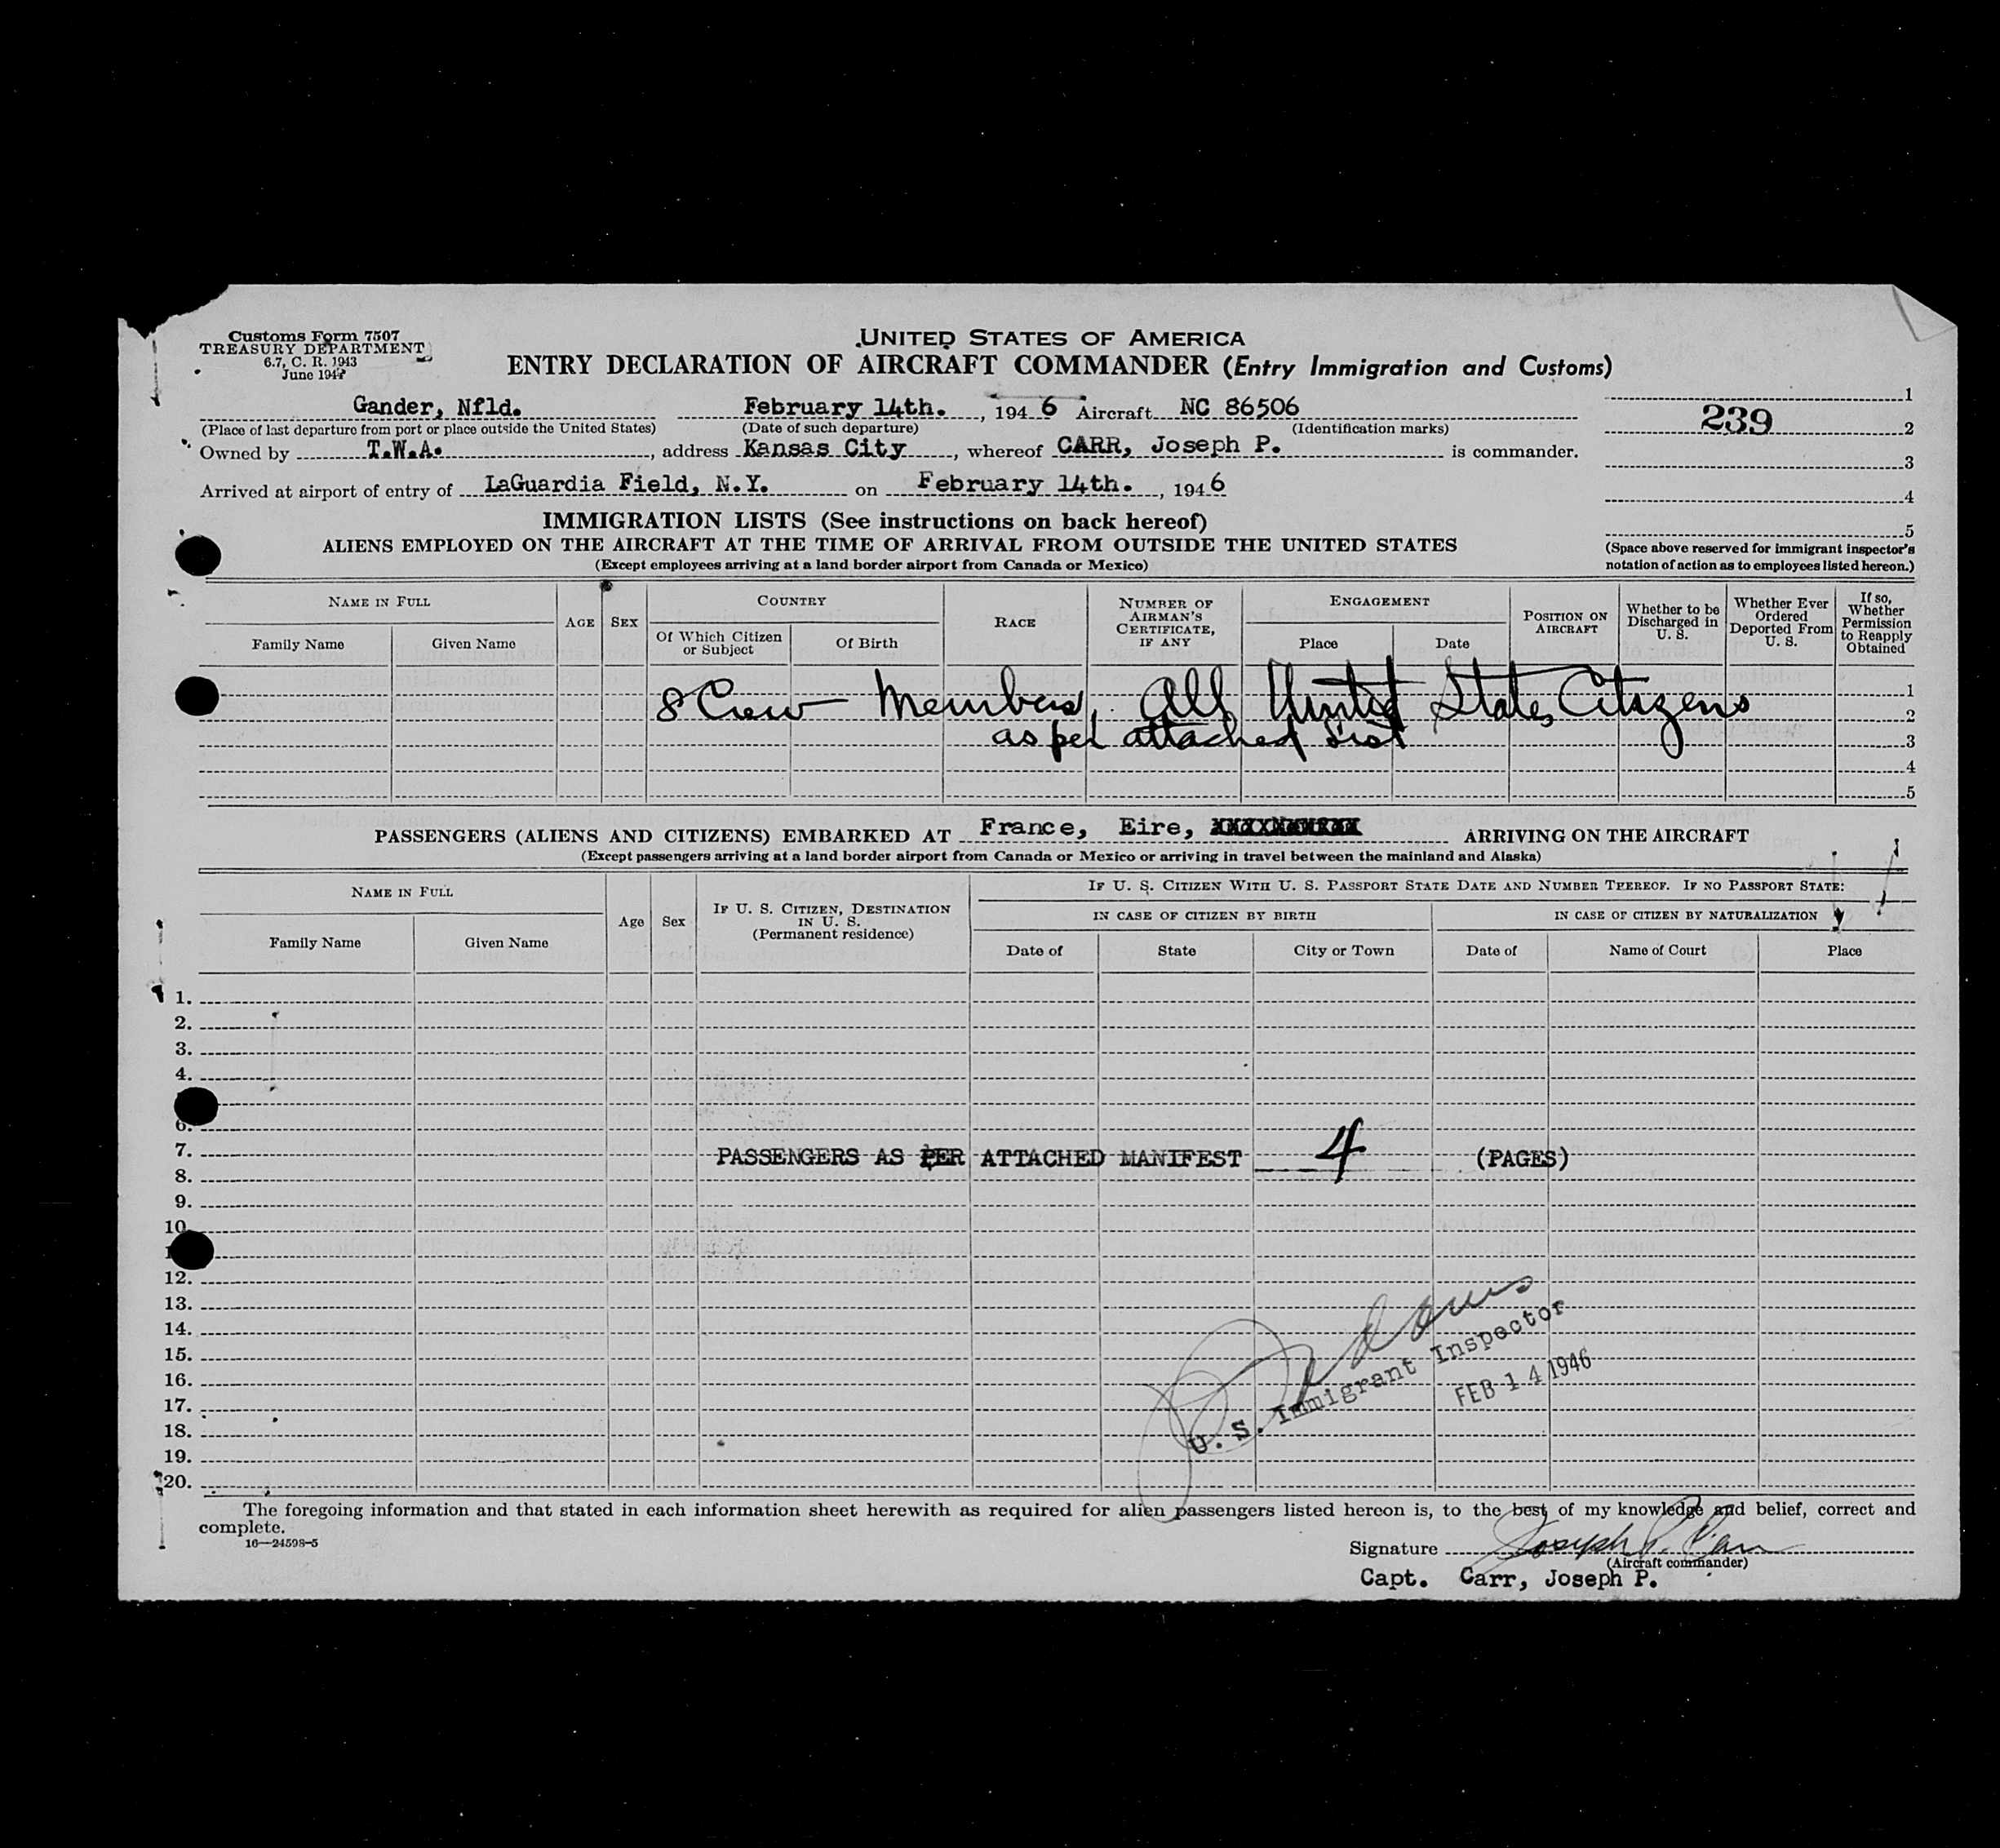 Customs Form 7507
TREASURY DEPARTMENT
6.7, C. R. 1943
June 194
UNITED STATES OF AMERICA
ENTRY DECLARATION OF AIRCRAFT COMMANDER (Entry Immigration and Customs)
Gander, Nfld. February 14th. , 194 6 Aircraft NC 86506
(Place of last departure from port or place outside the United States) (Date of such departure) (Identification marks)
Owned by T.W.A. , address Kansas City , whereof CARR, Joseph P. is commander.
Arrived at airport of entry of LaGuardia Field, N.Y. on February 14th. , 194 6
1
239
2
3
4
5
(Space above reserved for immigrant inspector's
notation of action as to employees listed hereon.)
IMMIGRATION LISTS (See instructions on back hereof)
ALIENS EMPLOYED ON THE AIRCRAFT AT THE TIME OF ARRIVAL FROM OUTSIDE THE UNITED STATES
(Except employees arriving at a land border airport from Canada or Mexico)
NAME IN FULL
Family Name Given Name
AGE SEX
COUNTRY
Of Which Citizen or Subject
Of Birth
RACE
NUMBER OF AIRMAN'S CERTIFICATE, IF ANY
ENGAGEMENT
Place Date
POSITION ON AIRCRAFT
Whether to be Discharged in U. S.
Whether Ever Ordered Deported From U. S.
If so, Whether Permission to Reapply Obtained
8 Crew Members, All United States Citizens
as per attached list
1
2
3
4
5
PASSENGERS (ALIENS AND CITIZENS) EMBARKED AT France, Eire, ARRIVING ON THE AIRCRAFT
(Except passengers arriving at a land border airport from Canada or Mexico or arriving in travel between the mainland and Alaska)
NAME IN FULL
Family Name Given Name
Age Sex
IF U. S. CITIZEN, DESTINATION IN U. S.
(Permanent residence)
IF U. S. CITIZEN WITH U. S. PASSPORT STATE DATE AND NUMBER THEREOF. IF NO PASSPORT STATE:
IN CASE OF CITIZEN BY BIRTH IN CASE OF CITIZEN BY NATURALIZATION
Date of State City or Town Date of Name of Court Place
1.
2.
3.
4.
6.
7.
PASSENGERS AS PER ATTACHED MANIFEST 4 (PAGES)
8.
9.
10.
12.
13.
14.
15.
16.
17.
18.
19.
20.
U. S. Immigrant Inspector
FEB 14 1946
The foregoing information and that stated in each information sheet herewith as required for alien passengers listed hereon is, to the best of my knowledge and belief, correct and
complete.
16—24598-5
Signature Joseph P. Carr
(Aircraft commander)
Capt. Carr, Joseph P.